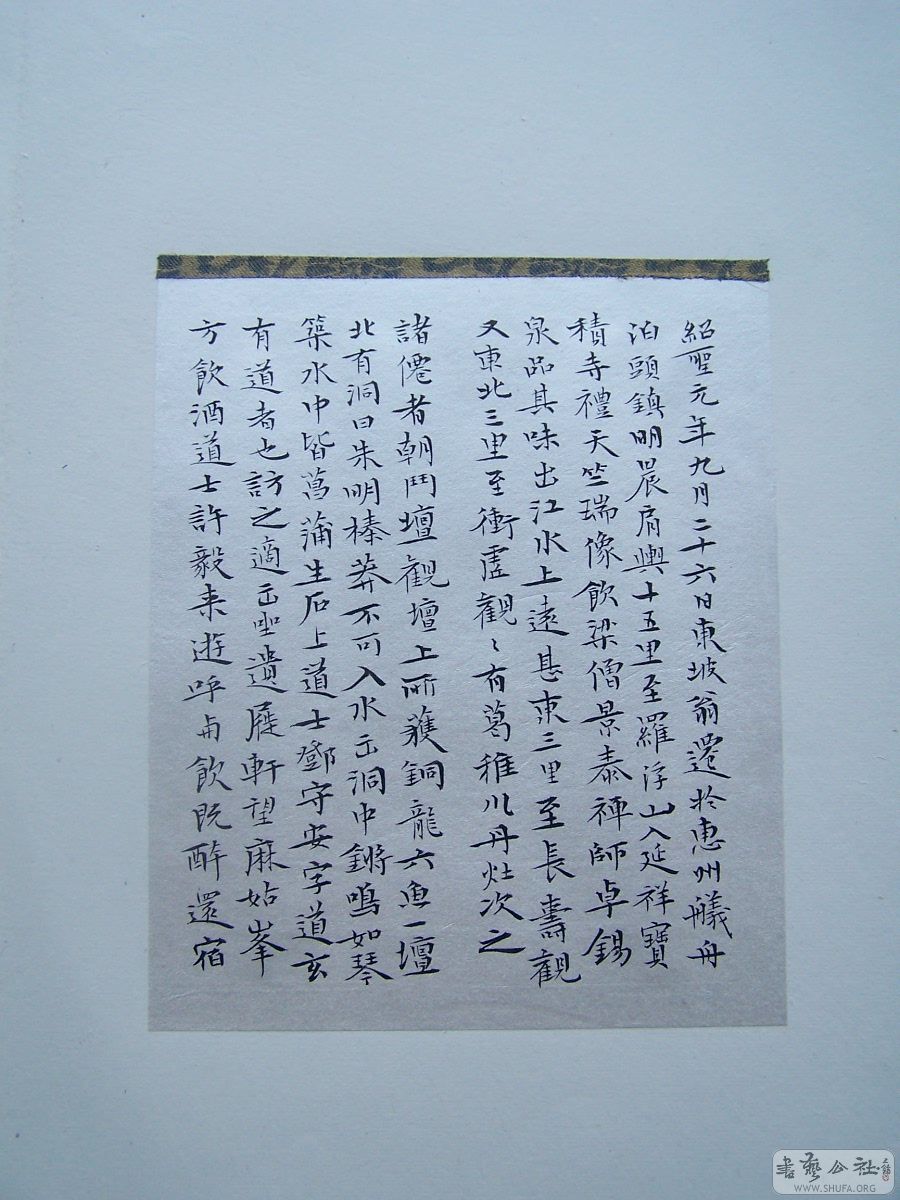 紹聖元年九月二十六日東坡翁遷於惠州艤舟
泊頭鎮明晨肩輿十五里至羅浮山入延祥寶
積寺禮天竺瑞像飲梁僧景泰禪師卓錫
泉品其味出江水上遠甚東三里至長壽觀
又東北三里至衝虛觀〻有葛稚川丹灶次之
諸僊者朝鬥壇觀壇上所獲銅龍六魚一壇
北有洞曰朱明榛莽不可入水出洞中鏘鳴如琴
築水中皆菖蒲生石上道士鄧守安字道玄
有道者也訪之適出坐遺屣軒望麻姑峯
方飲酒道士許毅来遊呼与飲既醉還宿
書藝公社
WWW.SHUFA.ORG